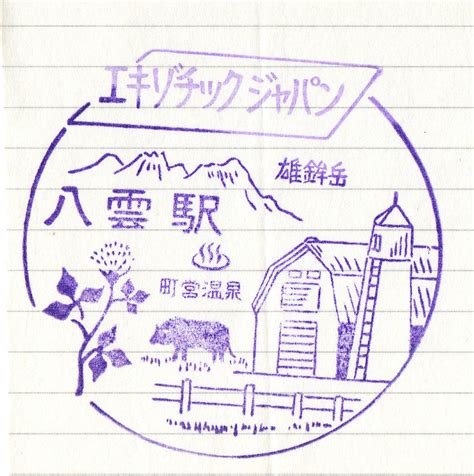 エキゾチックジャパン
雄鉾岳
八雲駅
町営温泉